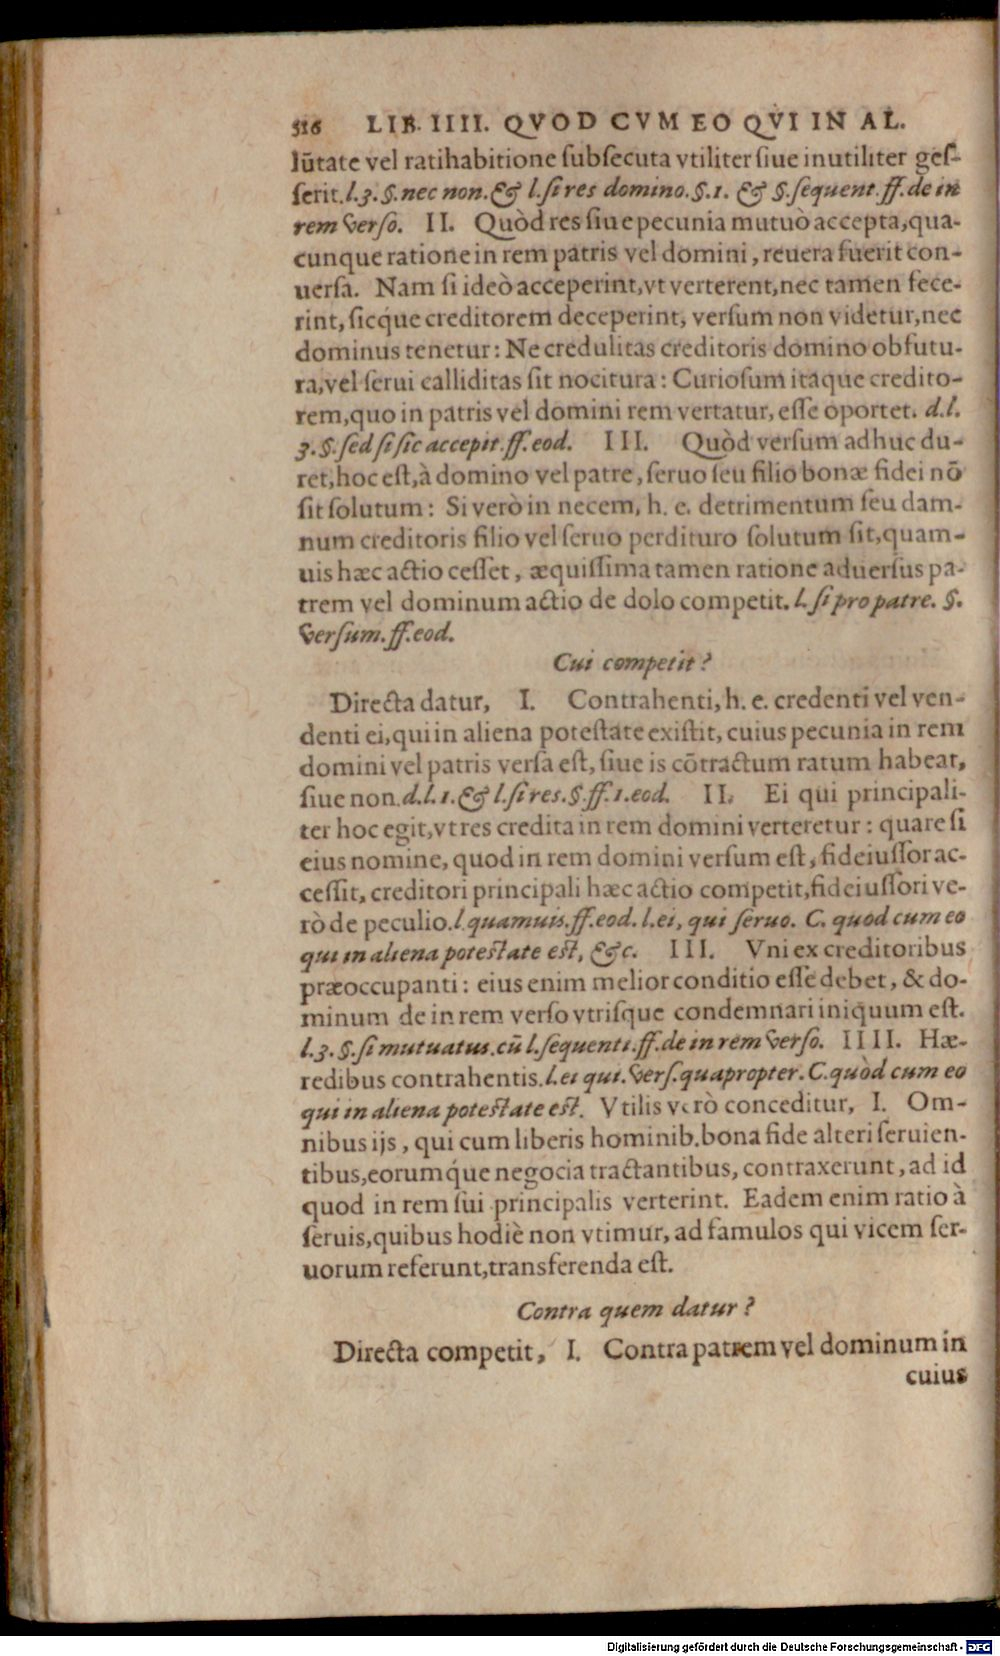 516 LIB. IIII. QVOD CVM EO QVI IN AL.
lũtate vel ratihabitione ſubſecuta vtiliter ſiue inutiliter geſ-
ſerit. l. 3. §. nec non. & l. ſi res domino. §. 1. & §. ſequent. ff. de in
rem verſo. II. Quòd res ſiue pecunia mutuò accepta, qua-
cunque ratione in rem patris vel domini, reuera fuerit con-
uerſa. Nam ſi ideò acceperint, vt verterent, nec tamen fece-
rint, ſicq́ue creditorem deceperint, verſum non videtur, nec
dominus tenetur: Ne credulitas creditoris domino obfutu-
ra, vel ſerui calliditas ſit nocitura: Curioſum itaque credito-
rem, quo in patris vel domini rem vertatur, eſſe oportet. d. l.
3. §. ſed ſi ſic accepit. ff. eod. III. Quòd verſum adhuc du-
ret, hoc eſt, à domino vel patre, ſeruo ſeu filio bonæ fidei nõ
ſit ſolutum: Si verò in necem, h. e. detrimentum ſeu dam-
num creditoris filio vel ſeruo perdituro ſolutum ſit, quam-
uis hæc actio ceſſet, æquiſſima tamen ratione aduerſus pa-
trem vel dominum actio de dolo competit. l. ſi pro patre. §.
verſum. ff. eod.
Cui competit?
Directa datur, I. Contrahenti, h. e. credenti vel ven-
denti ei, qui in aliena poteſtate exiſtit, cuius pecunia in rem
domini vel patris verſa eſt, ſiue is cõtractum ratum habeat,
ſiue non. d. l. 1. & l. ſi res. §. ff. 1. eod. II. Ei qui principali-
ter hoc egit, vt res credita in rem domini verteretur: quare ſi
eius nomine, quod in rem domini verſum eſt, fideiuſſor ac-
ceſſit, creditori principali hæc actio competit, fideiuſſori ve-
rò de peculio. l. quamuis. ff. eod. l. ei, qui ſeruo. C. quod cum eo
qui in aliena poteſtate eſt, &c. III. Vni ex creditoribus
præoccupanti: eius enim melior conditio eſſe debet, & do-
minum de in rem verſo vtriſque condemnari iniquum eſt.
l. 3. §. ſi mutuatus. cũ l. ſequenti. ff. de in rem verſo. IIII. Hæ-
redibus contrahentis. l. ei qui. verſ. quapropter. C. quòd cum eo
qui in aliena poteſtate eſt. Vtilis verò conceditur, I. Om-
nibus ijs, qui cum liberis hominib. bona fide alteri ſeruien-
tibus, eorumq́ue negocia tractantibus, contraxerunt, ad id
quod in rem ſui principalis verterint. Eadem enim ratio à
ſeruis, quibus hodiè non vtimur, ad famulos qui vicem ſer-
uorum referunt, transferenda eſt.
Contra quem datur?
Directa competit, I. Contra patrem vel dominum in
cuius
Digitalisierung gefördert durch die Deutsche Forschungsgemeinschaft - DFG